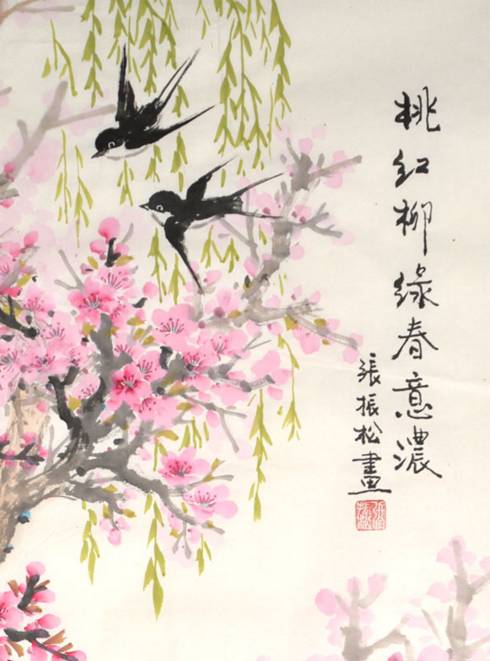 桃红柳綠春意濃
張振松畫